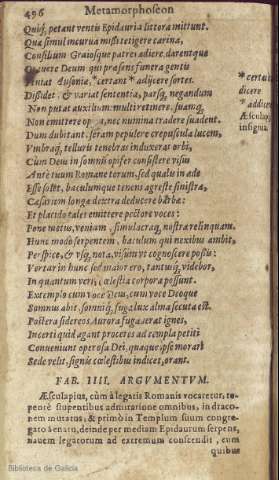 496 Metamorphoseon
Quiq́; petant ventis Epidauria littora mittunt.
Quæ simul incurua missi tetigere carina,
Consilium Graiosque patres adiere, darentque
Orauere Deum qui præsens funera gentis
Finiat Ausoniæ, *certant* adijcere sortes.
Dissidet, & variat sententia, parsq́; negandum
Non putat auxilium: multi retinere, suamq́;
Non emittere opem, nec numina tradere suadent.
Dum dubitant, seram pepulere crepuscula lucem,
Vmbraq́; telluris tenebras induxerat orbi,
Cùm Deus in somnis opifer consistere visus
Ante tuum Romane torum, sed qualis in æde
Esse solet, baculumque tenens agreste sinistra,
Cæsariem longæ dextra deducere barbæ:
Et placido tales emittere pectore voces:
Pone metus, veniam, simulacraq́; nostra relinquam.
Hunc modò serpentem, baculum qui nexibus ambit,
Perspice, & vsq́; nota, visum vt cognoscere possis:
Vertar in hunc, sed maior ero, tantusq́; videbor,
In quantum verti cælestia corpora possunt.
Extemplo cum voce Deus, cum voce Deoque
Somnus abit, somniq́; fuga lux alma secuta est.
Postera sidereos Aurora fugauerat ignes,
Incerti quid agant proceres ad templa petiti
Conueniunt operosa Dei, quaque ipse morari
Sede velit, signis cælestibus indicet, orant.
*certis
dicere
* addu
Æscula
insigni
FAB. IIII. ARGVMENTVM.
Æsculapius, cùm à legatis Romanis vocaretur, re-
pentè stupentibus admiratione omnibus, in draco-
nem mutatus, & primò in Templum suum congre-
gato senatu, deinde per mediam Epidaurum serpens,
nauem legatorum ad extremum conscendit, cum
quibus
Biblioteca de Galicia